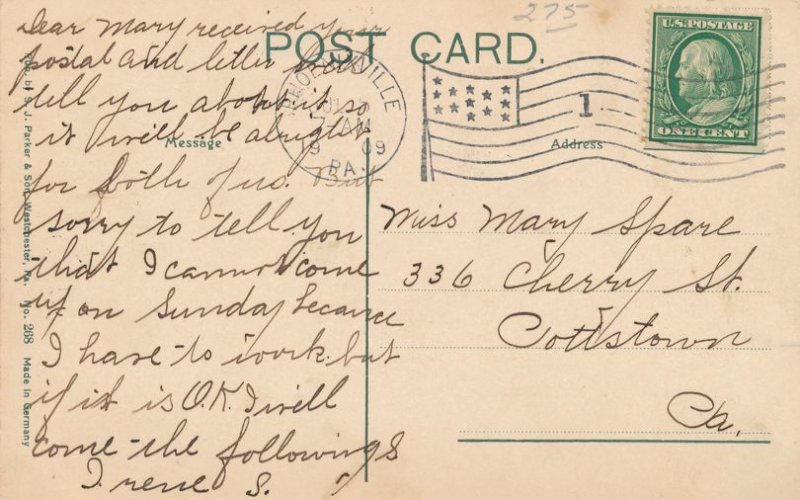 275
POST CARD.
U.S. POSTAGE
ONE CENT
1
PHOENIXVILLE
AM
1909
PA.
Message
Address
Dear Mary received your
postal and letter
tell you about so
it will be alright
for both of us. But
sorry to tell you
that I cannot come
up on Sunday because
I have to work but
if it is O.K. I will
come the following S
Irene S.
Miss Mary Spare
336 Cherry St.
Pottstown
Pa.
J. Parker & Son, Westchester, Pa. No. 268 Made in Germany